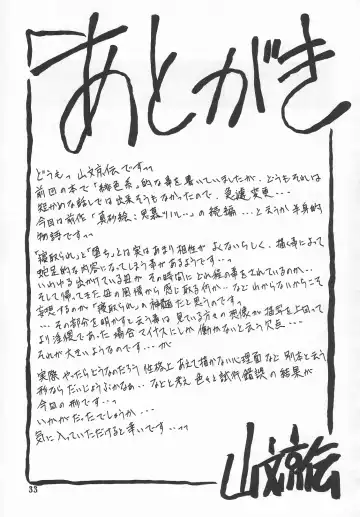 あとがき
どうもっ 山文京伝ですっっ
前回の本で「桃色系」的な事を書いていましたが、どうもそれは
短かめな話しでは出来そうもなかったので、急遽変更・・・
今回は前作「真砂絵：黒裏リリィ」の後編・・・というか半身的
物語ですっっ
「寝取られ」と「堕ち」とは実はあまり相性が よくないらしく、描く事によって
蛇足的な内容になってしまう事があるようです・・っ
いわゆる出かけている母が その時間に どれ程の事をされているのか・・
そして帰ってきた母の風情から 感じ取る何か・・など わからないからこそ
妄想するのが「寝取られ」の神髄だと思うのですっ
・・・その部分を明かすと云う事は 見ている方々の想像が 描写を上回って
より淫猥であった場合 マイナスにしか 働かないと云う欠点・・・
それが大きいようなのです・・・が
実際 やったらどうなのだろう 性格上 あえて描かない心理面など 別本と云う
形なら だいじょうぶかなぁ・・ などと考え 色々と試行錯誤の結果が
今回の形ですっっ
いかがだったでしょうか・・・
気に入っていただけると幸いです・・っっ
山文京伝
33